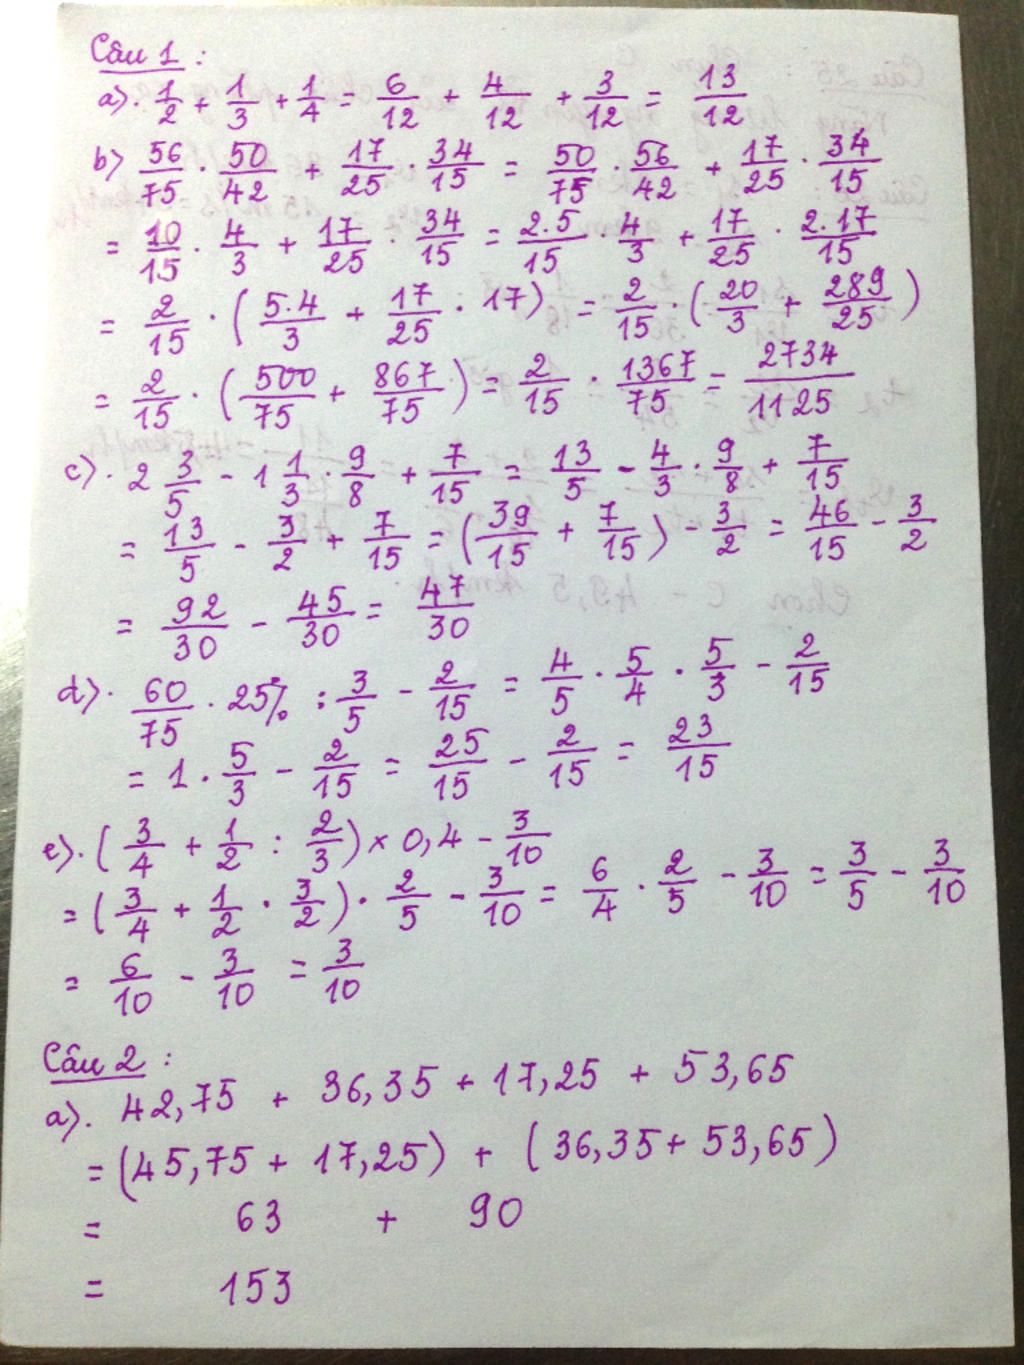 Câu 1 :
a). 1/2 + 1/3 + 1/4 = 6/12 + 4/12 + 3/12 = 13/12
b) 56/75 . 50/42 + 17/25 . 34/15 = 50/75 . 56/42 + 17/25 . 34/15
= 10/15 . 4/3 + 17/25 . 34/15 = 2.5/15 . 4/3 + 17/25 . 2.17/15
= 2/15 . (5.4/3 + 17/25 . 17) = 2/15 . (20/3 + 289/25)
= 2/15 . (500/75 + 867/75) = 2/15 . 1367/75 = 2734/1125
c). 2 3/5 - 1 1/3 . 9/8 + 7/15 = 13/5 - 4/3 . 9/8 + 7/15
= 13/5 - 3/2 + 7/15 = (39/15 + 7/15) - 3/2 = 46/15 - 3/2
= 92/30 - 45/30 = 47/30
d). 60/75 . 25% : 3/5 - 2/15 = 4/5 . 5/4 . 5/3 - 2/15
= 1 . 5/3 - 2/15 = 25/15 - 2/15 = 23/15
e). (3/4 + 1/2 : 2/3) × 0,4 - 3/10
= (3/4 + 1/2 . 3/2) . 2/5 - 3/10 = 6/4 . 2/5 - 3/10 = 3/5 - 3/10
= 6/10 - 3/10 = 3/10
Câu 2 :
a). 42,75 + 36,35 + 17,25 + 53,65
= (45,75 + 17,25) + (36,35 + 53,65)
= 63 + 90
= 153